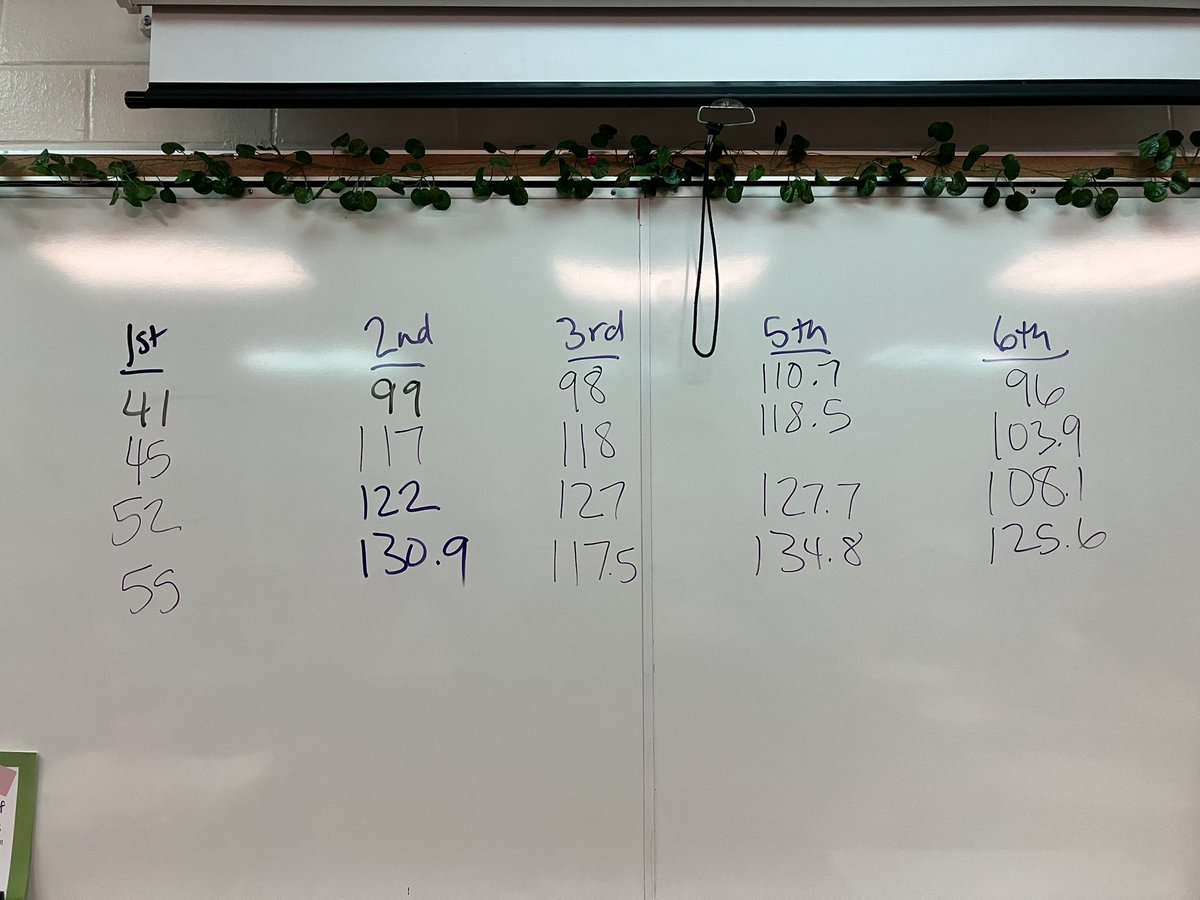 1st 2nd 3rd 5th 6th
41 99 98 110.7 96
45 117 118 118.5 103.9
52 122 127 127.7 108.1
55 130.9 117.5 134.8 125.6